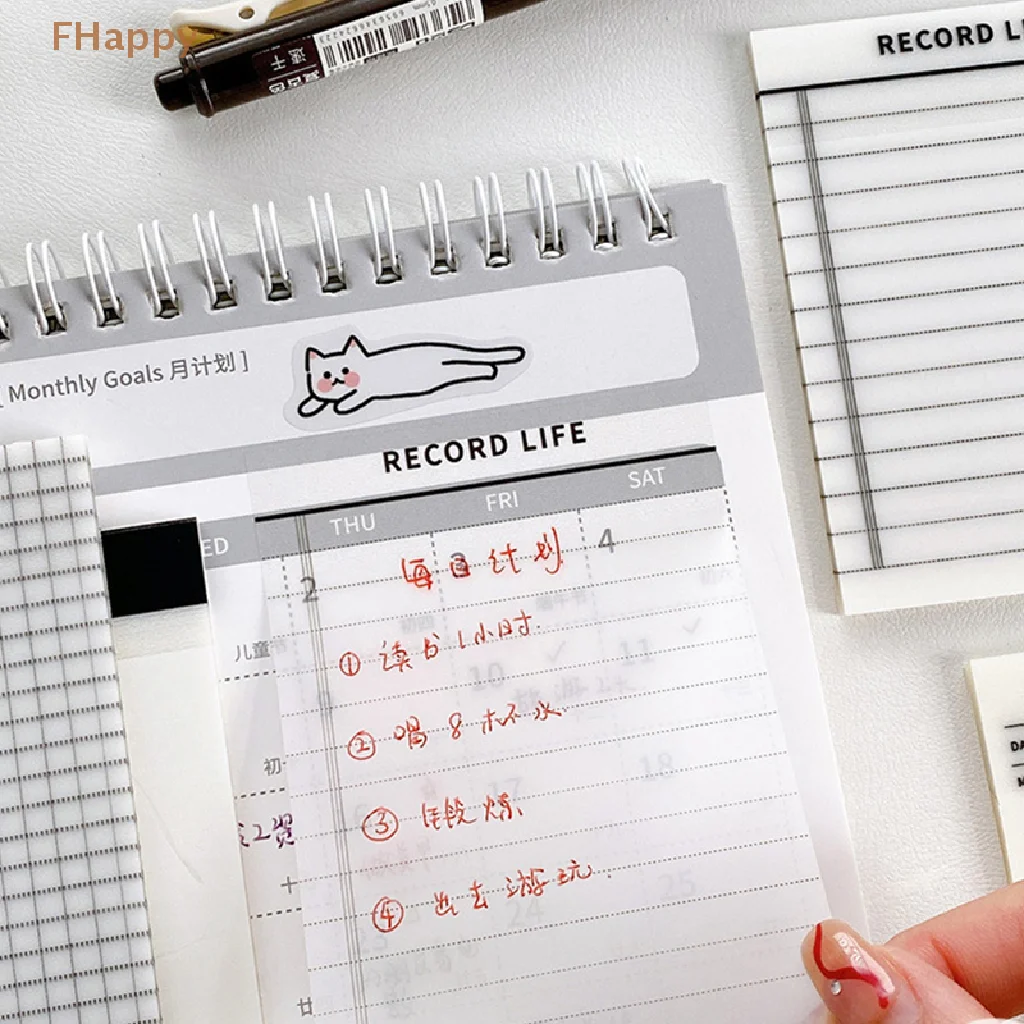 FHappy
RECORD LI
[ Monthly Goals 月计划 ]
RECORD LIFE
ED THU FRI SAT
2 3 4
每日计划
① 读书1小时.
儿童
10 11
② 喝8杯水.
初
17 18
③ 锻炼.
工资
十
④ 出去游玩.
24 25
廿